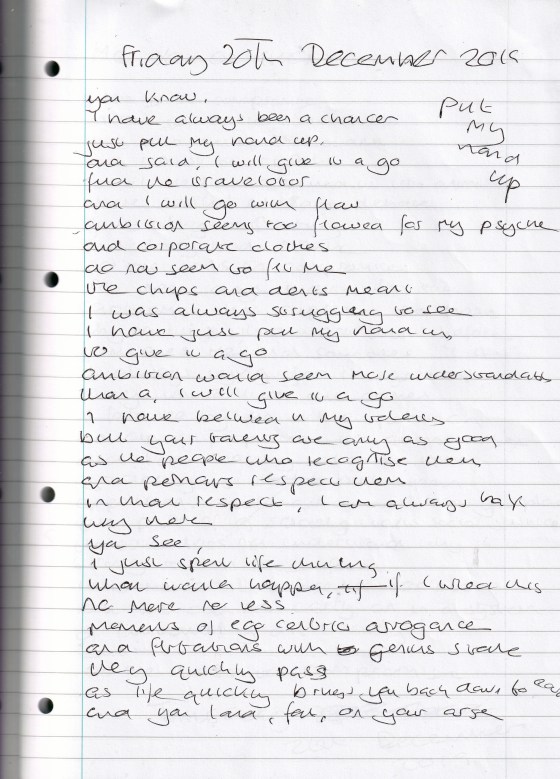 Friday 20Th December 2019
Put
My
hand
up
you know,
I have always been a chancer
just put my hand up.
and said, I will give it a go
find the
and I will go with flow
ambition seems too flowed for my psyche
and corporate clothes
do not seem to fit me
the chips and dents meant
I was always struggling to see
I have just put my hand up
to give it a go
ambition would seem more understandable
than a, I will give it a go
I have believed in my talents
but your talents are only as good
as the people who recognise them
and perhaps respect them
in that respect, I am always half
way there
ya see,
I just spent life thinking
what would happen, if I tried this
no more no less.
moments of ego centric arrogance
and flirtations with genius state
they quickly pass
as life quickly brings you back down to
and you land, fall, on your arse